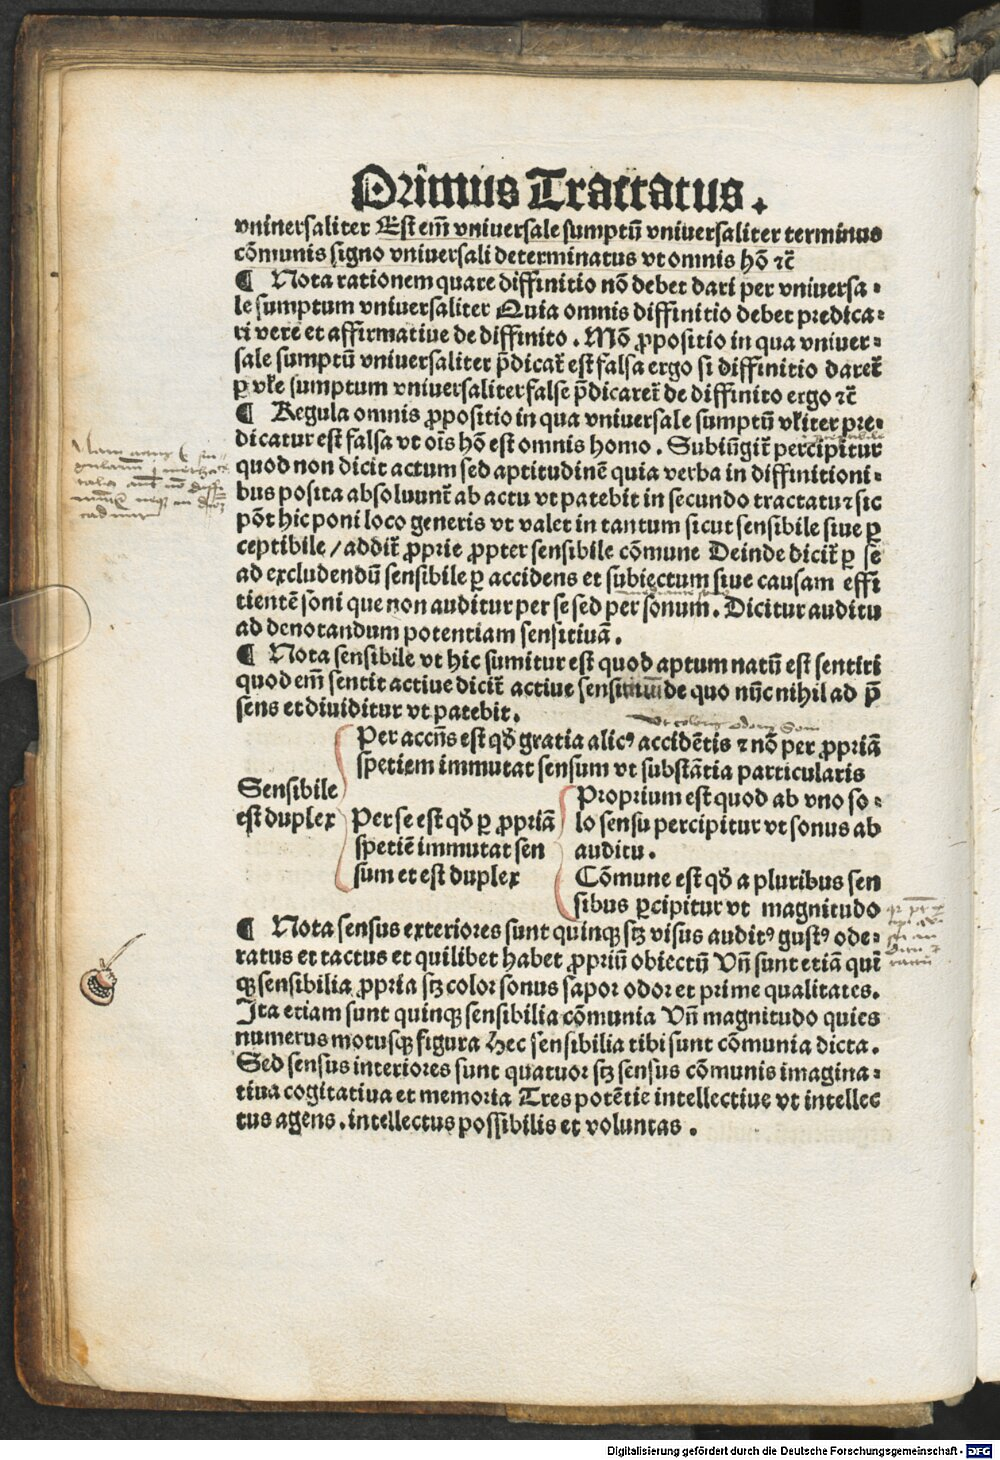 Primus Tractatus.
vniuersaliter Est em̄ vniuersale sumptū vniuersaliter terminus
cōmunis signo vniuersali determinatus vt omnis hō ⁊c̄
¶ Nota rationem quare diffinitio nō debet dari per vniuersa⸗
le sumptum vniuersaliter Quia omnis diffinitio debet predica⸗
ri vere et affirmatiue de diffinito. Mō ꝓpositio in qua vniuer⸗
sale sumptū vniuersaliter p̄dicat̄ est falsa ergo si diffinitio daret̄
ꝑ vl̄e sumptum vniuersaliter false p̄dicaret̄ de diffinito ergo ⁊c̄
¶ Regula omnis ꝓpositio in qua vniuersale sumptū vl̄iter pre⸗
dicatur est falsa vt oīs hō est omnis homo. Subiūgit̄ percipitur
quod non dicit actum sed aptitudinē quia verba in diffinitioni⸗
bus posita absoluunt̄ ab actu vt patebit in secundo tractatu ⁊ sic
pōt hic poni loco generis vt valet in tantum sicut sensibile siue ꝑ
ceptibile / addit̄ ꝓprie ꝓpter sensibile cōmune Deinde dicit̄ ꝑ se
ad excludendū sensibile ꝑ accidens et subiectum siue causam effi
tientē soni que non auditur per se sed per sonum. Dicitur auditu
ad denotandum potentiam sensitiuā.
¶ Nota sensibile vt hic sumitur est quod aptum natū est sentiri
quod em̄ sentit actiue dicit̄ actiue sensitiuū de quo nūc nihil ad p̄
sens et diuiditur vt patebit.
Per accn̄s est qd̄ gratia alicꝰ accidētis ⁊ nō per ꝓpriā
spetiem immutat sensum vt substātia particularis
Sensibile
est duplex
Per se est qd̄ ꝑ ꝓpriā
spetiē immutat sen
sum et est duplex
Proprium est quod ab vno so⸗
lo sensu percipitur vt sonus ab
auditu.
Cōmune est qd̄ a pluribus sen
sibus ꝑcipitur vt magnitudo
¶ Nota sensus exteriores sunt quinqꝫ scꝫ visus auditꝰ gustꝰ odo⸗
ratus et tactus et quilibet habet ꝓpriū obiectū Vn̄ sunt etiā quī
qꝫ sensibilia ꝓpria scꝫ color sonus sapor odor et prime qualitates.
Ita etiam sunt quinqꝫ sensibilia cōmunia Vn̄ magnitudo quies
numerus motusqꝫ figura Hec sensibilia tibi sunt cōmunia dicta.
Sed sensus interiores sunt quatuor scꝫ sensus cōmunis imagina⸗
tiua cogitatiua et memoria Tres potētie intellectiue vt intellec
tus agens. intellectus possibilis et voluntas.
Digitalisierung gefördert durch die Deutsche Forschungsgemeinschaft - DFG